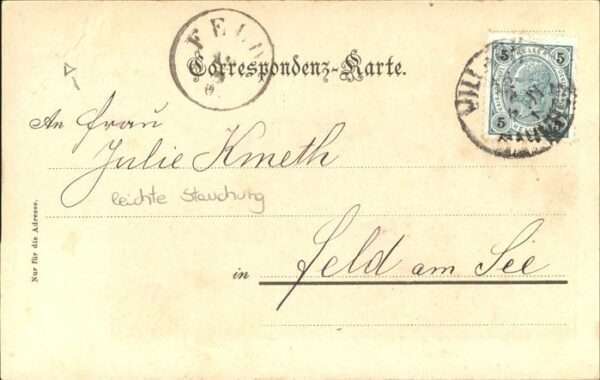 FELD
Correspondenz-Karte.
5 5
5
An Frau
Julie Kmeth
leichte Stauchung
Nur für die Adresse.
in Feld am See